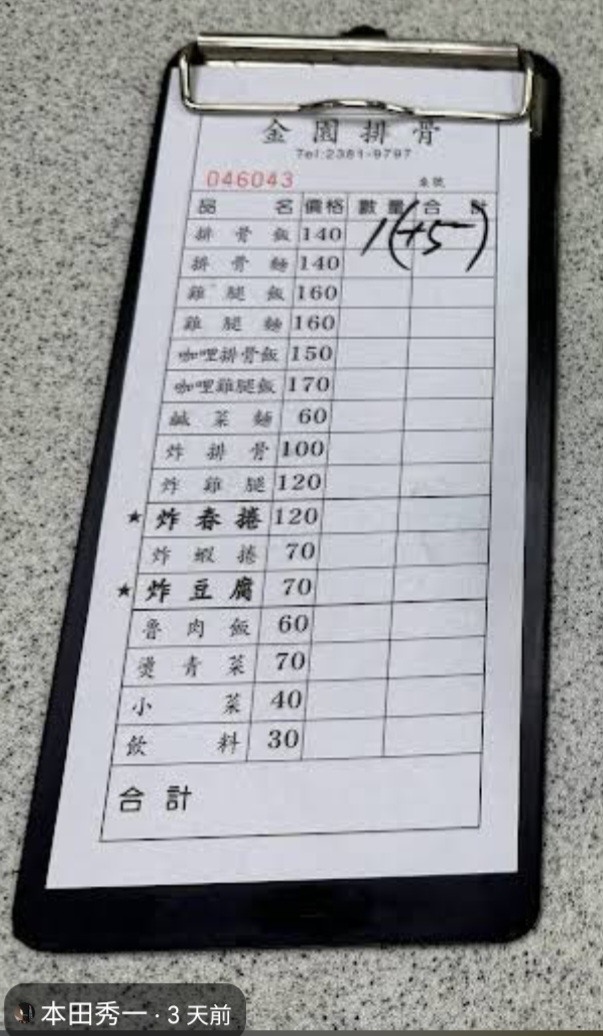 金園排骨
Tel:2381-9797
046043 桌號
品名 價格 數量 合計
排骨飯 140 1(+5)
排骨麵 140
雞腿飯 160
雞腿麵 160
咖哩排骨飯 150
咖哩雞腿飯 170
鹹菜麵 60
炸排骨 100
炸雞腿 120
★炸春捲 120
炸蝦捲 70
★炸豆腐 70
魯肉飯 60
燙青菜 70
小菜 40
飲料 30
合計
本田秀一 · 3 天前